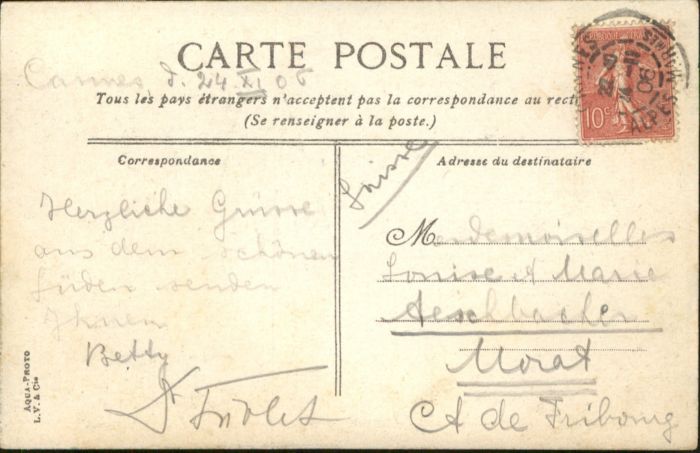 CARTE POSTALE
Cannes d. 24 XI 06
Tous les pays étrangers n'acceptent pas la correspondance au recto
(Se renseigner à la poste.)
Correspondance
Adresse du destinataire
Suisse
Herzliche Grüsse
aus dem schönen
Süden senden
Ihnen
Betty
Mesdemoiselles
Louise & Marie
Aeschbacher
Morat
Ct de Fribourg
AQUA-PHOTO
L.V. & Cie
10c
ALPES
06